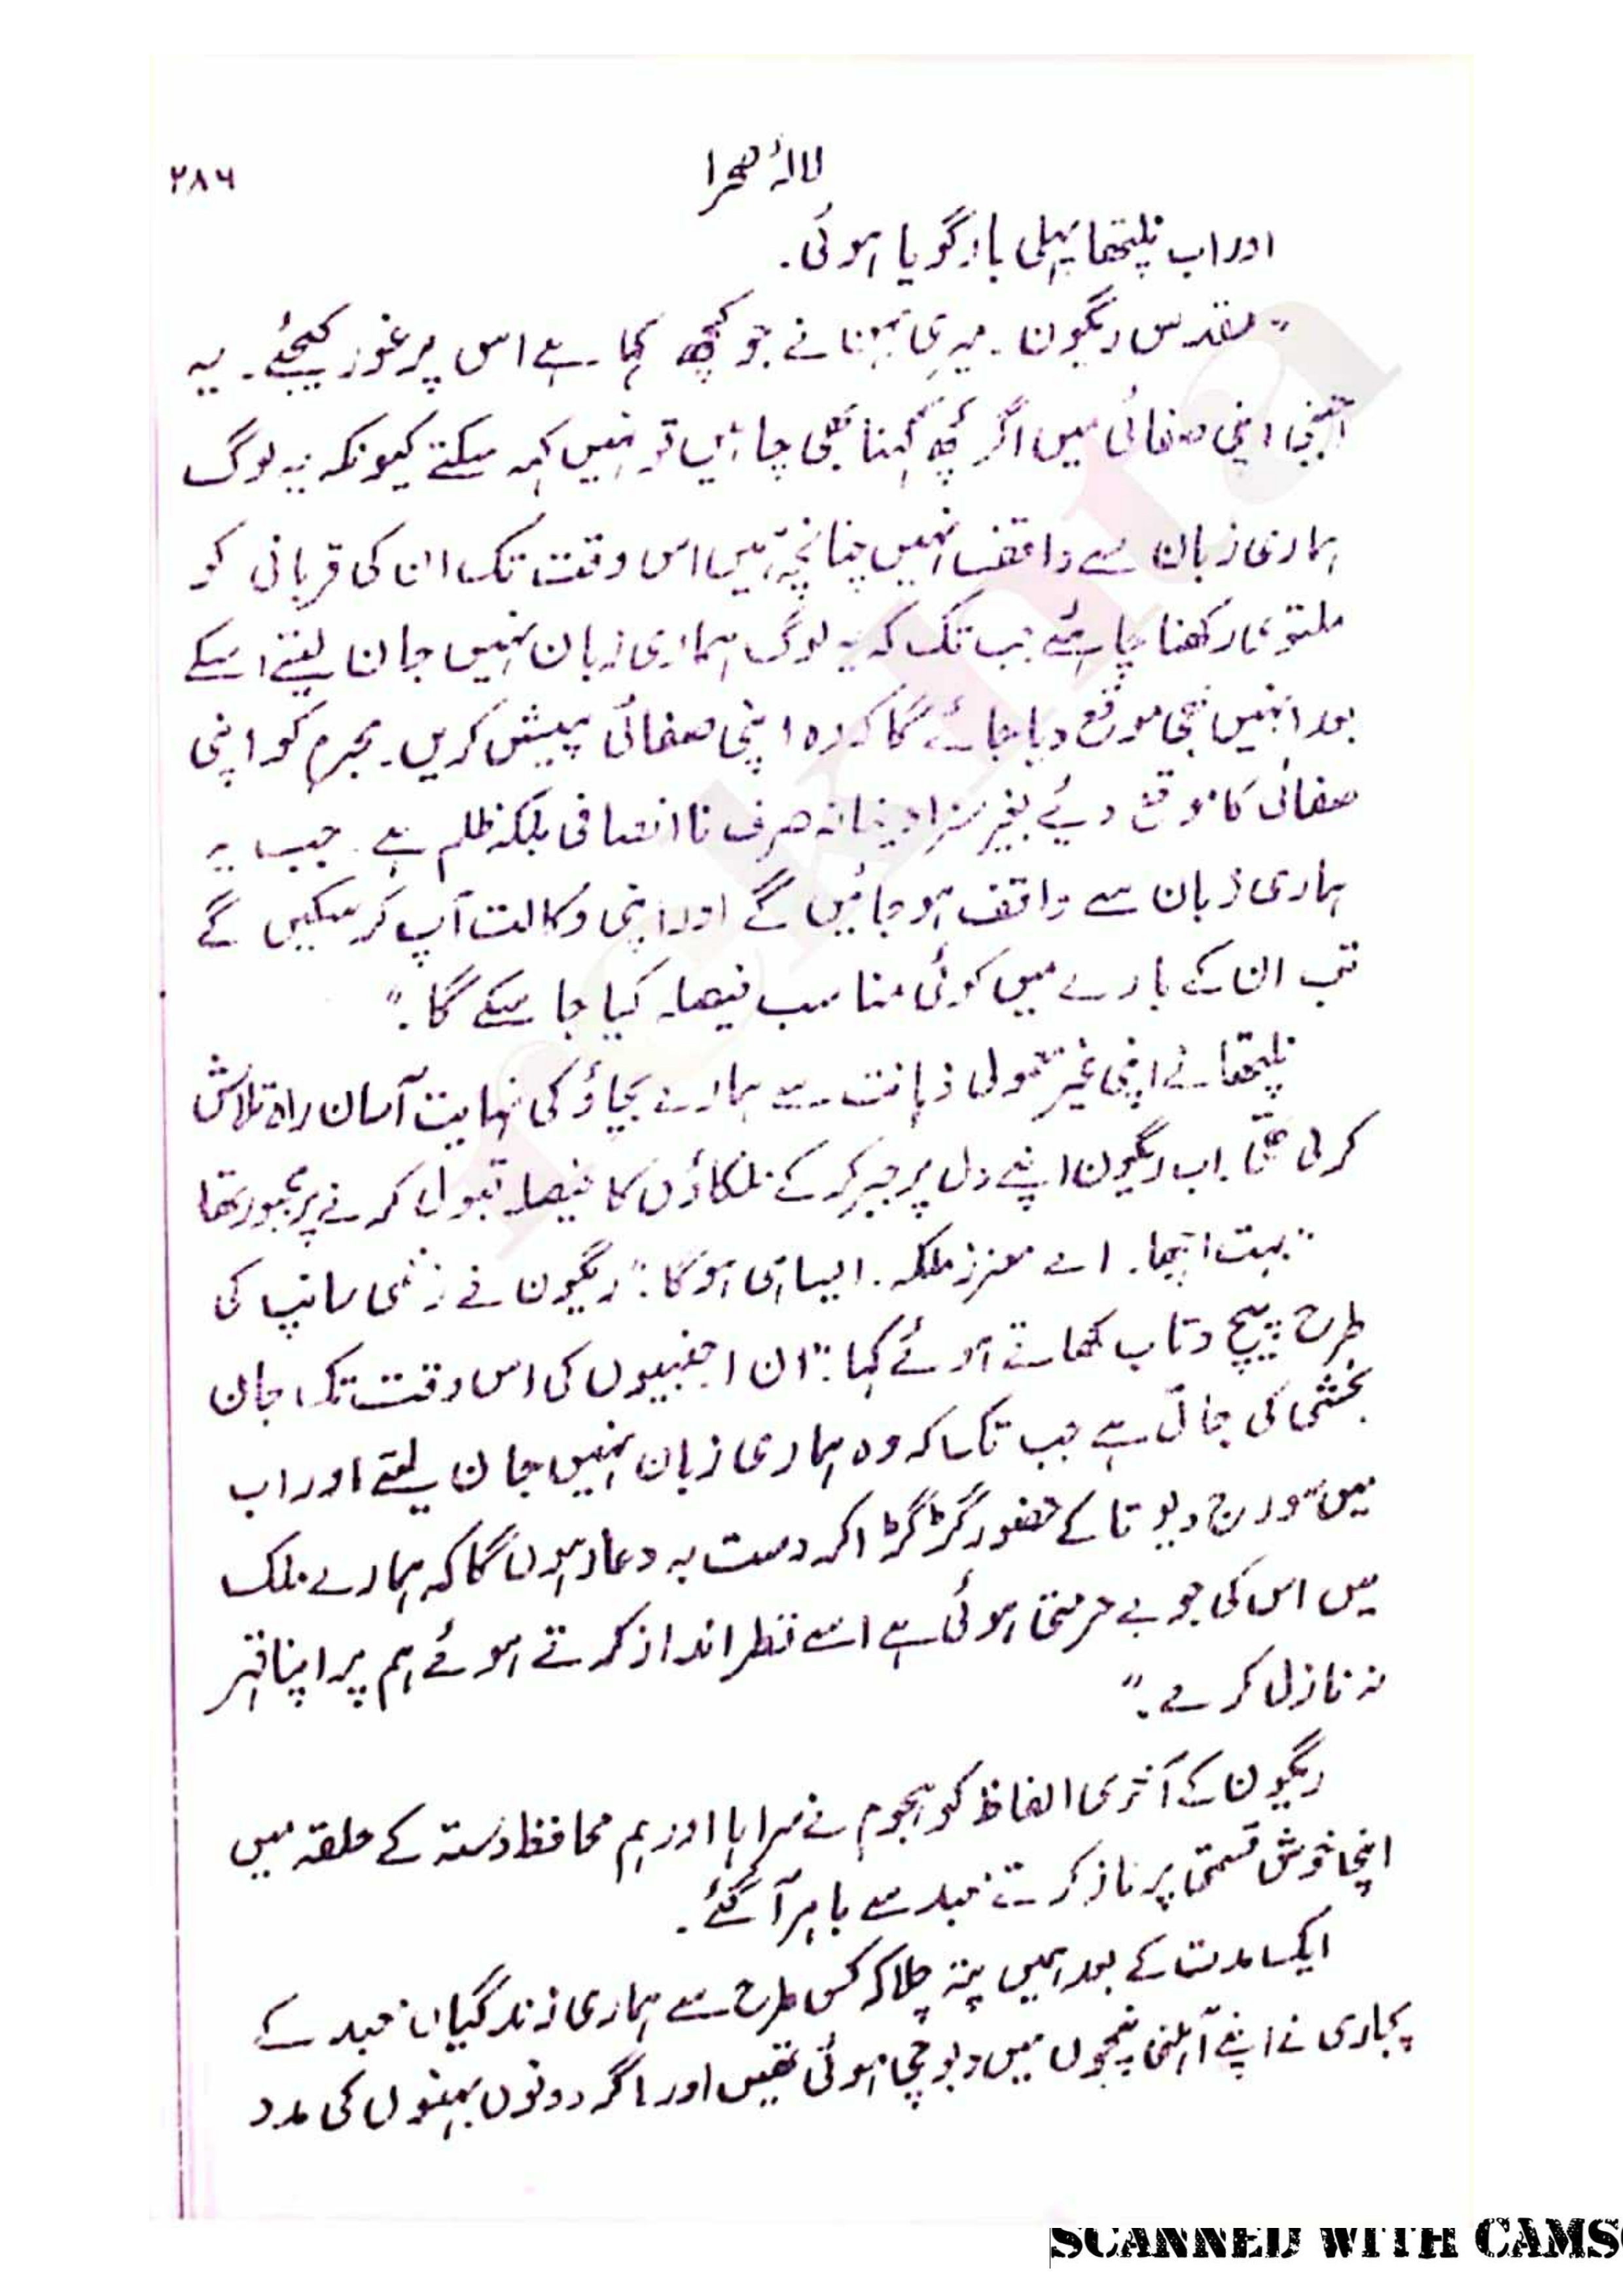 لالۂ صحرا
۲۸۶
اور اب نلیتھا پہلی بار گویا ہوئی۔
"مقدس ریگون۔ میری بہن نے جو کچھ کہا ہے اس پر غور کیجئے۔ یہ
اجنبی اپنی صفائی میں اگر کچھ کہنا بھی چاہیں تو نہیں کہہ سکتے کیونکہ یہ لوگ
ہماری زبان سے واقف نہیں چنانچہ ہمیں اس وقت تک ان کی قربانی کو
ملتوی رکھنا چاہئے جب تک کہ یہ لوگ ہماری زبان نہیں جان لیتے اسکے
بعد انہیں بھی موقع دیا جائے گا کہ وہ اپنی صفائی پیش کریں۔ مجرم کو اپنی
صفائی کا موقع دیئے بغیر سزا دینا نہ صرف ناانصافی بلکہ ظلم ہے۔ جب یہ
ہماری زبان سے واقف ہو جائیں گے اور اپنی وکالت آپ کر سکیں گے
تب ان کے بارے میں کوئی مناسب فیصلہ کیا جا سکے گا۔"
نلیتھا نے اپنی غیر معمولی ذہانت سے ہمارے بچاؤ کی نہایت آسان راہ تلاش
کر لی تھی۔ اب ریگون اپنے دل پر جبر کر کے ملکاؤں کا فیصلہ قبول کرنے پر مجبور تھا
"بہت اچھا۔ اے معزز ملکہ۔ ایسا ہی ہو گا۔" ریگون نے زخمی سانپ کی
طرح پیچ و تاب کھاتے ہوئے کہا۔ "ان اجنبیوں کی اس وقت تک جان
بخشی کی جاتی ہے جب تک کہ وہ ہماری زبان نہیں جان لیتے اور اب
میں سورج دیوتا کے حضور گڑگڑا کر دست بہ دعا رہوں گا کہ ہمارے ملک
میں اس کی جو بے حرمتی ہوئی ہے اسے نظر انداز کرتے ہوئے ہم پر اپنا قہر
نہ نازل کرے۔"
ریگون کے آخری الفاظ کو ہجوم نے سراہا اور ہم محافظ دستہ کے حلقہ میں
اپنی خوش قسمتی پر ناز کرتے معبد سے باہر آ گئے۔
ایک مدت کے بعد ہمیں پتہ چلا کہ کس طرح سے ہماری زندگیاں معبد کے
پجاری نے اپنے آہنی پنجوں میں دبوچی ہوئی تھیں اور اگر دونوں بہنوں کی مدد
SCANNED WITH CAMS